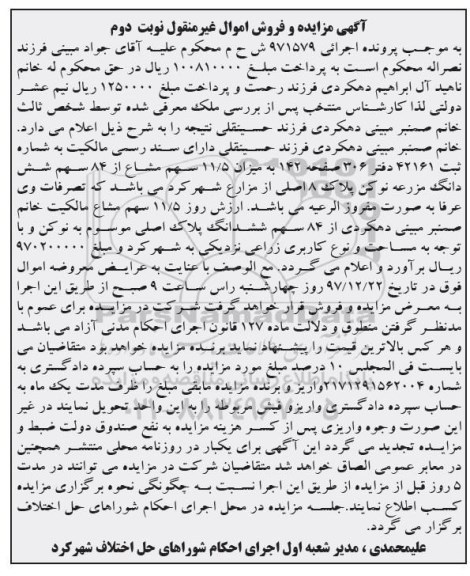 آگهی مزایده و فروش اموال غیرمنقول نوبت دوم
به موجب پرونده اجرائی ۹۷۱۵۷۹ ش ح م محکوم علیه آقای جواد مبینی فرزند
نصراله محکوم است به پرداخت مبلغ ۱۰۰۸۱۰۰۰۰ ریال در حق محکوم له خانم
ناهید آل ابراهیم دهکردی فرزند رحمت و پرداخت مبلغ ۱۲۵۰۰۰۰ ریال نیم عشر
دولتی لذا کارشناس منتخب پس از بررسی ملک معرفی شده توسط شخص ثالث
خانم صمنبر مبینی دهکردی فرزند حسینقلی نتیجه را به شرح ذیل اعلام می دارد.
خانم صمنبر مبینی دهکردی فرزند حسینقلی دارای سند رسمی مالکیت به شماره
۴۲۱۶۱ دفتر ۳۰۶ صفحه ۱۴۲ به میزان ۱۱/۵ سهم مشاع از ۸۴ سهم شش
دانگ مزرعه نوکن پلاک ۸ اصلی از مزارع شهرکرد می باشد که تصرفات وی
عرفا به صورت مفروز الرعیه می باشد. ارزش روز ۱۱/۵ سهم مشاع مالکیت خانم
صمنبر مبینی دهکردی از ۸۴ سهم ششدانگ پلاک اصلی موسوم به نوکن و با
توجه به مساحت و نوع کاربری زراعی نزدیکی به شهرکرد و مبلغ ۹۷۰۲۰۰۰۰۰
ریال برآورد و اعلام می گردد. مع الوصف با عنایت به عرایض معروضه اموال
فوق در تاریخ ۹۷/۱۲/۲۲ روز چهارشنبه راس ساعت ۹ صبح از طریق این اجرا
به معرض مزایده و فروش قرار خواهد گرفت شرکت در مزایده برای عموم با
مدنظر گرفتن منطوق و دلالت ماده ۱۲۷ قانون اجرای احکام مدنی آزاد می باشد
و هر کس بالاترین قیمت را پیشنهاد نماید برنده مزایده خواهد بود متقاضیان می
بایست فی المجلس ۱۰ درصد مبلغ مورد مزایده را به حساب سپرده دادگستری به
شماره ۲۱۷۱۲۹۱۵۶۲۰۰۴ واریز و برنده مزایده مابقی مبلغ را ظرف مدت یک ماه به
حساب سپرده دادگستری واریز و فیش مربوطه را به این واحد تحویل نمایند در غیر
این صورت وجوه واریزی پس از کسر هزینه مزایده به نفع صندوق دولت ضبط و
مزایده تجدید می گردد این آگهی برای یکبار در روزنامه محلی منتشر همچنین
در معابر عمومی الصاق خواهد شد متقاضیان شرکت در مزایده می توانند در مدت
۵ روز قبل از مزایده از طریق این اجرا نسبت به چگونگی نحوه برگزاری مزایده
کسب اطلاع نمایند.جلسه مزایده در محل اجرای احکام شوراهای حل اختلاف
برگزار می گردد.
علیمحمدی ، مدیر شعبه اول اجرای احکام شوراهای حل اختلاف شهرکرد